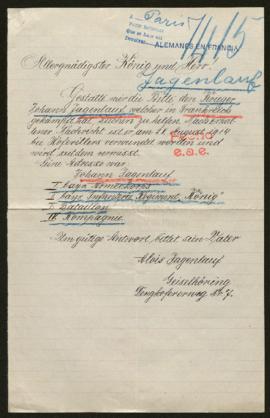 a Paris
7/4/15
ALEMANES EN FRANCIA
Allergnädigster König und Herr.
Jagenlauf
Gestatte mir die Bitte den Krieger
Johann Jagenlauf, welcher in Frankreich
gekämpft hat, suchen zu helfen. Nach
einer Nachricht ist er am 28. August 1914
bei verwundet worden und
wird seitdem vermisst.
Seine Adresse war:
Johann Jagenlauf
I. bayr. Armeekorps
1. bayr. Infanterie Regiment "König"
Bataillon
Kompagnie
Um gütige Antwort bittet sein Vater
Alois Jagenlauf
Geiselhöring